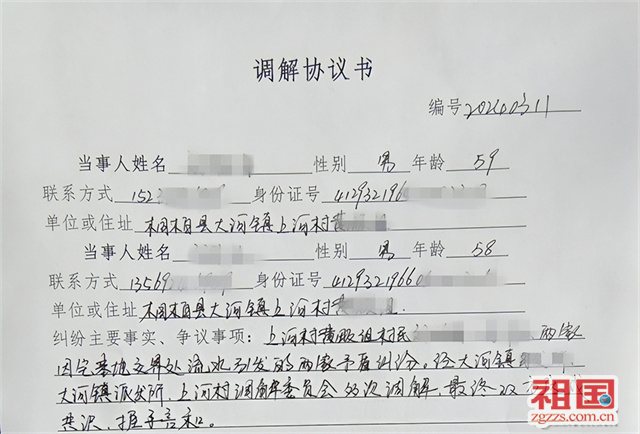 调解协议书
编号 20240311
当事人姓名 性别 男 年龄 59
联系方式 152 身份证号 412932196
单位或住址 桐柏县大河镇上河村黄
当事人姓名 性别 男 年龄 58
联系方式 13569 身份证号 4129321966
单位或住址 桐柏县大河镇上河村黄
纠纷主要事实、争议事项: 上河村黄畈组村民 两家
因宅基地交界处流水引发的两家矛盾纠纷。经大河镇
大河镇派出所,上河村调解委员会多次调解,最终双方
共识,握手言和。
祖国
zgzzs.com.cn